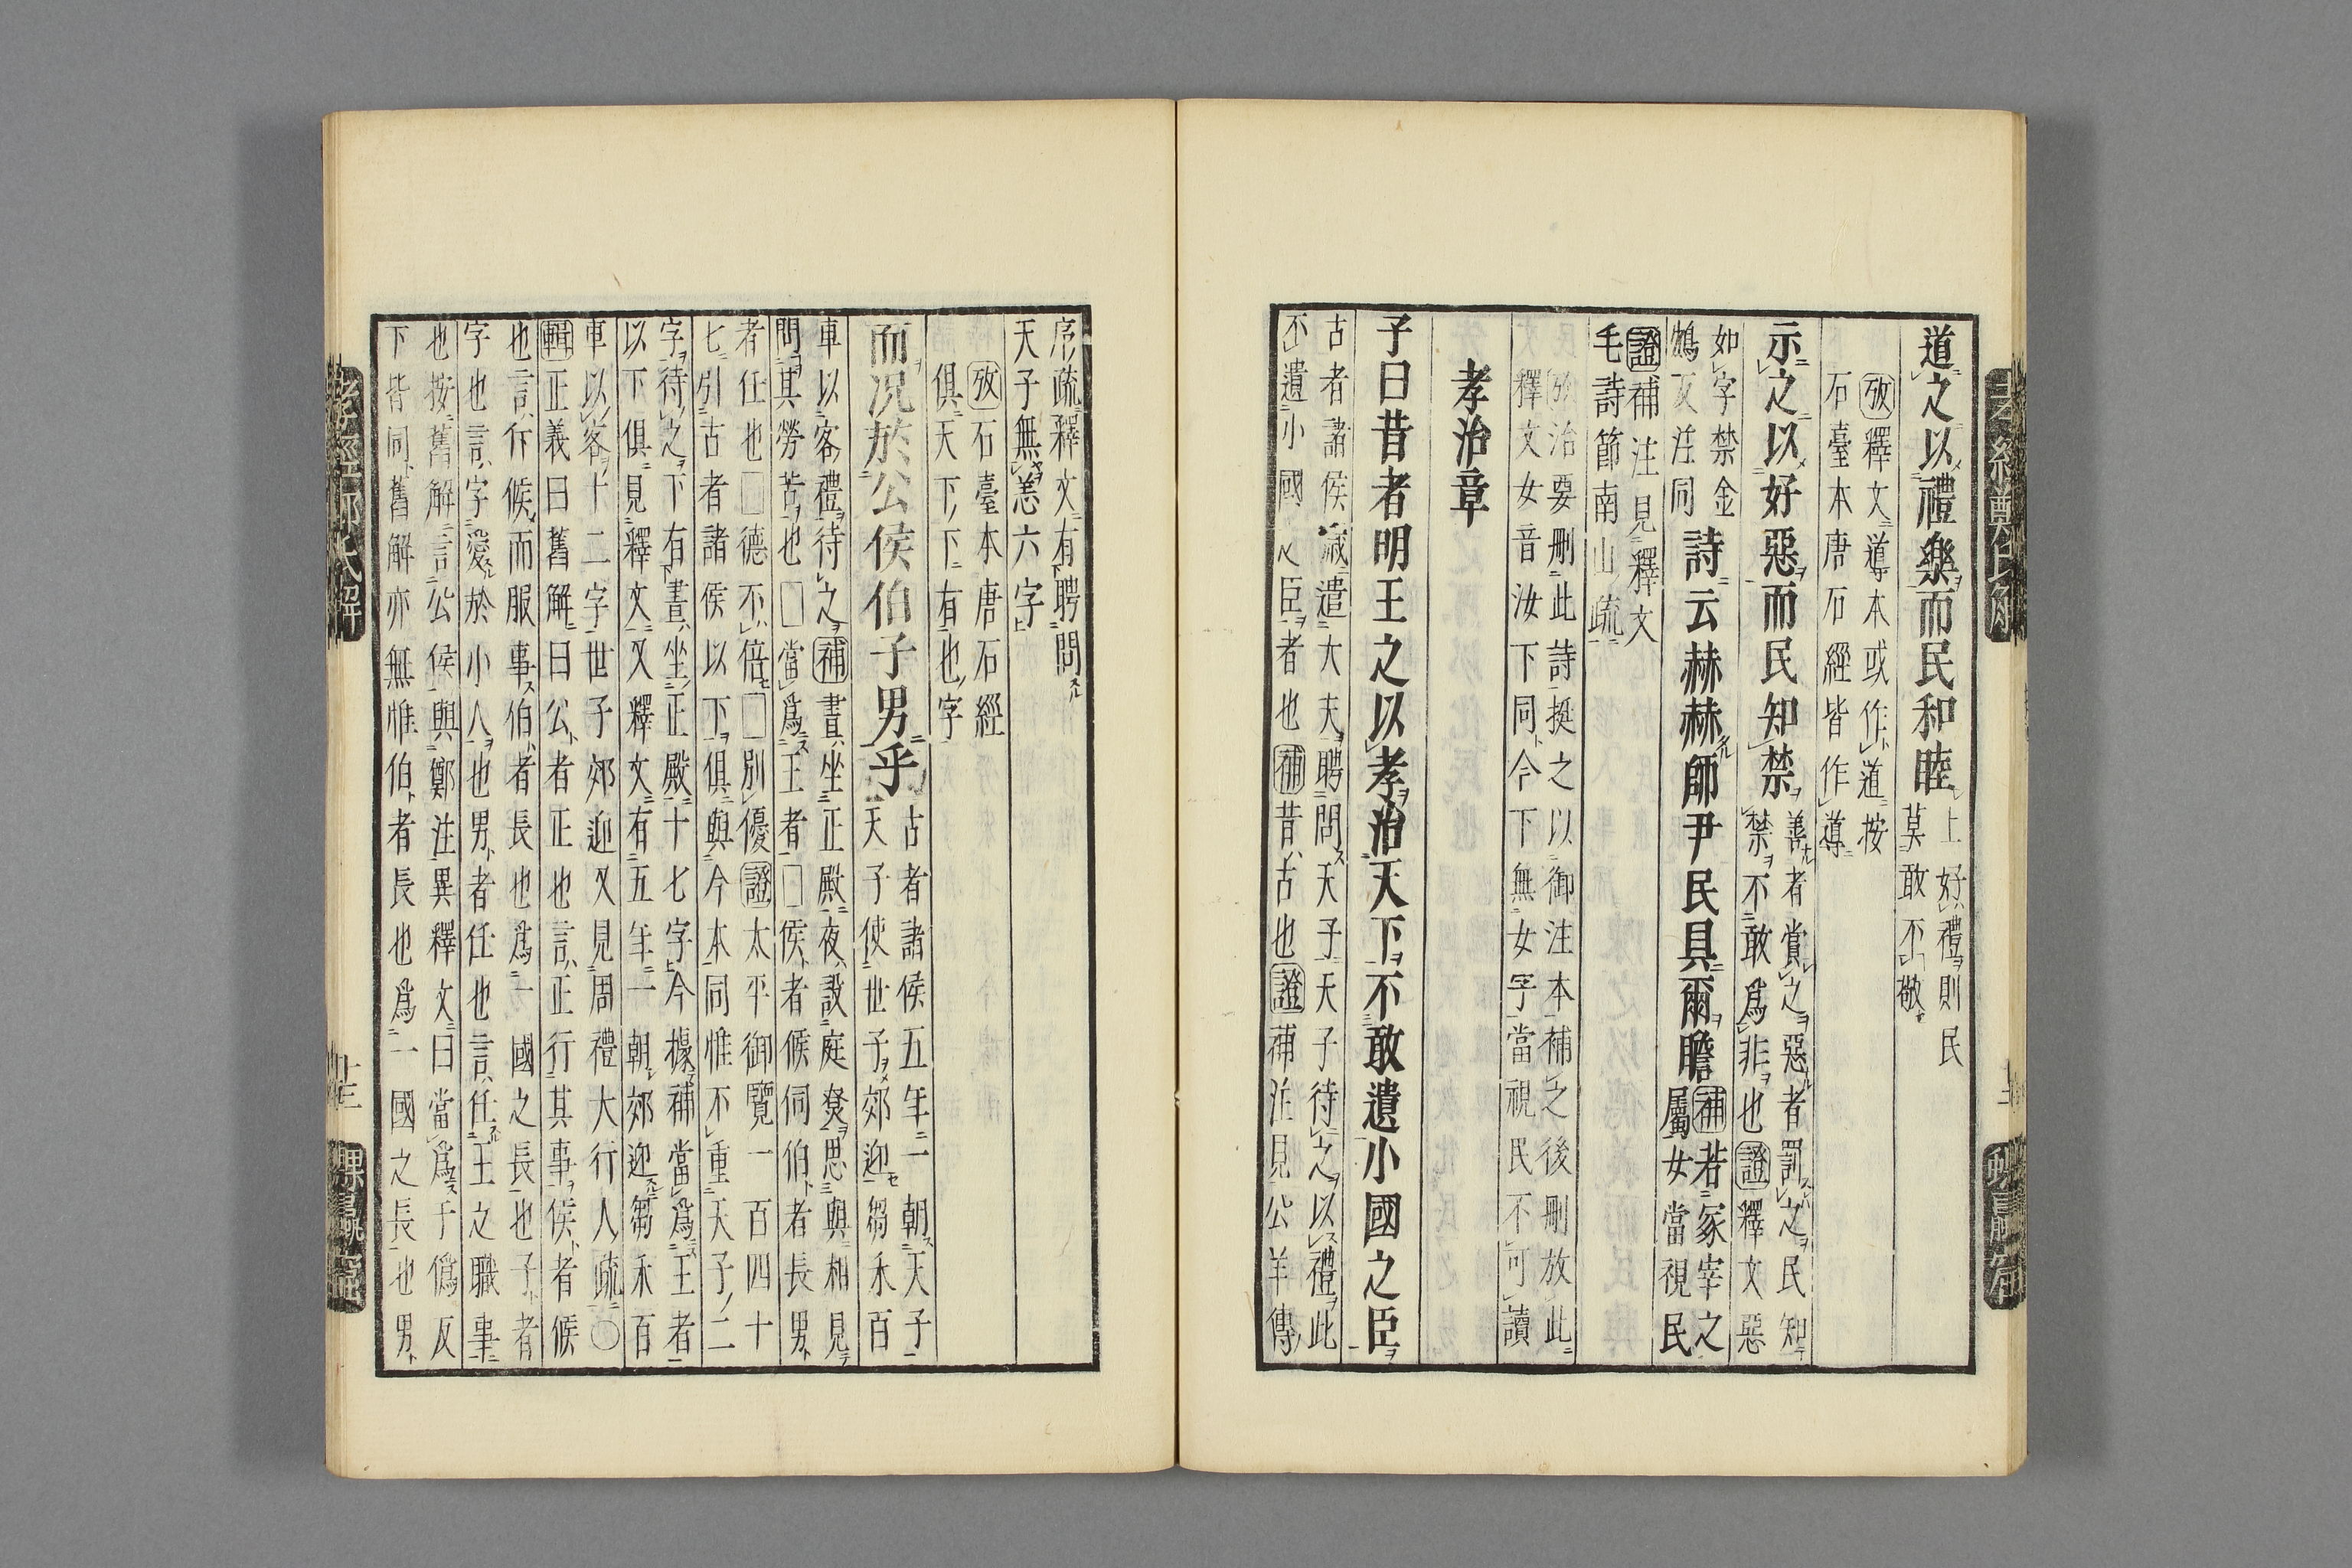 道之以禮樂而民和睦上好禮則民
莫敢不敬
攷釋文導本或作道按
石臺本唐石經皆作導
示之以好惡而民知禁善者賞之惡者罰之民知
禁不敢爲非也證釋文惡
如字禁金
鴆反注同
詩云赫赫師尹民具爾瞻補若冢宰之
屬女當視民
證補注見釋文
毛詩節南山疏
攷治要刪此詩挺之以御注本補之後刪放此
釋文女音汝下同今下無女字當視民不可讀
孝治章
子曰昔者明王之以孝治天下不敢遺小國之臣
古者諸侯歲遣大夫聘問天子天子待之以禮此
不遺小國之臣者也補昔古也證補注見公羊傳
序疏釋文有聘問
天子無恙六字
攷石臺本唐石經
俱天下下有也字
而况於公侯伯子男乎古者諸侯五年一朝天子
天子使世子郊迎芻禾百
車以客禮待之補晝坐正殿夜設庭燎思與相見
問其勞苦也□當爲王者□侯者候伺伯者長男
者任也□德不倍□別優證太平御覽一百四十
七引古者諸侯以下俱與今本同惟不重天子二
字待之下有晝坐正殿十七字今據補當爲王者
以下俱見釋文又釋文有五年一朝郊迎芻禾百
車以客十二字世子郊迎又見周禮大行人疏○
輯正義曰舊解曰公者正也言正行其事侯者候
也言斥候而服事伯者長也爲一國之長也子者
字也言字愛於小人也男者任也言任王之職事
也按舊解言公侯與鄭注異釋文曰當爲于僞反
下皆同舊解亦無惟伯者長也爲一國之長也男
孝經鄭氏解
十三